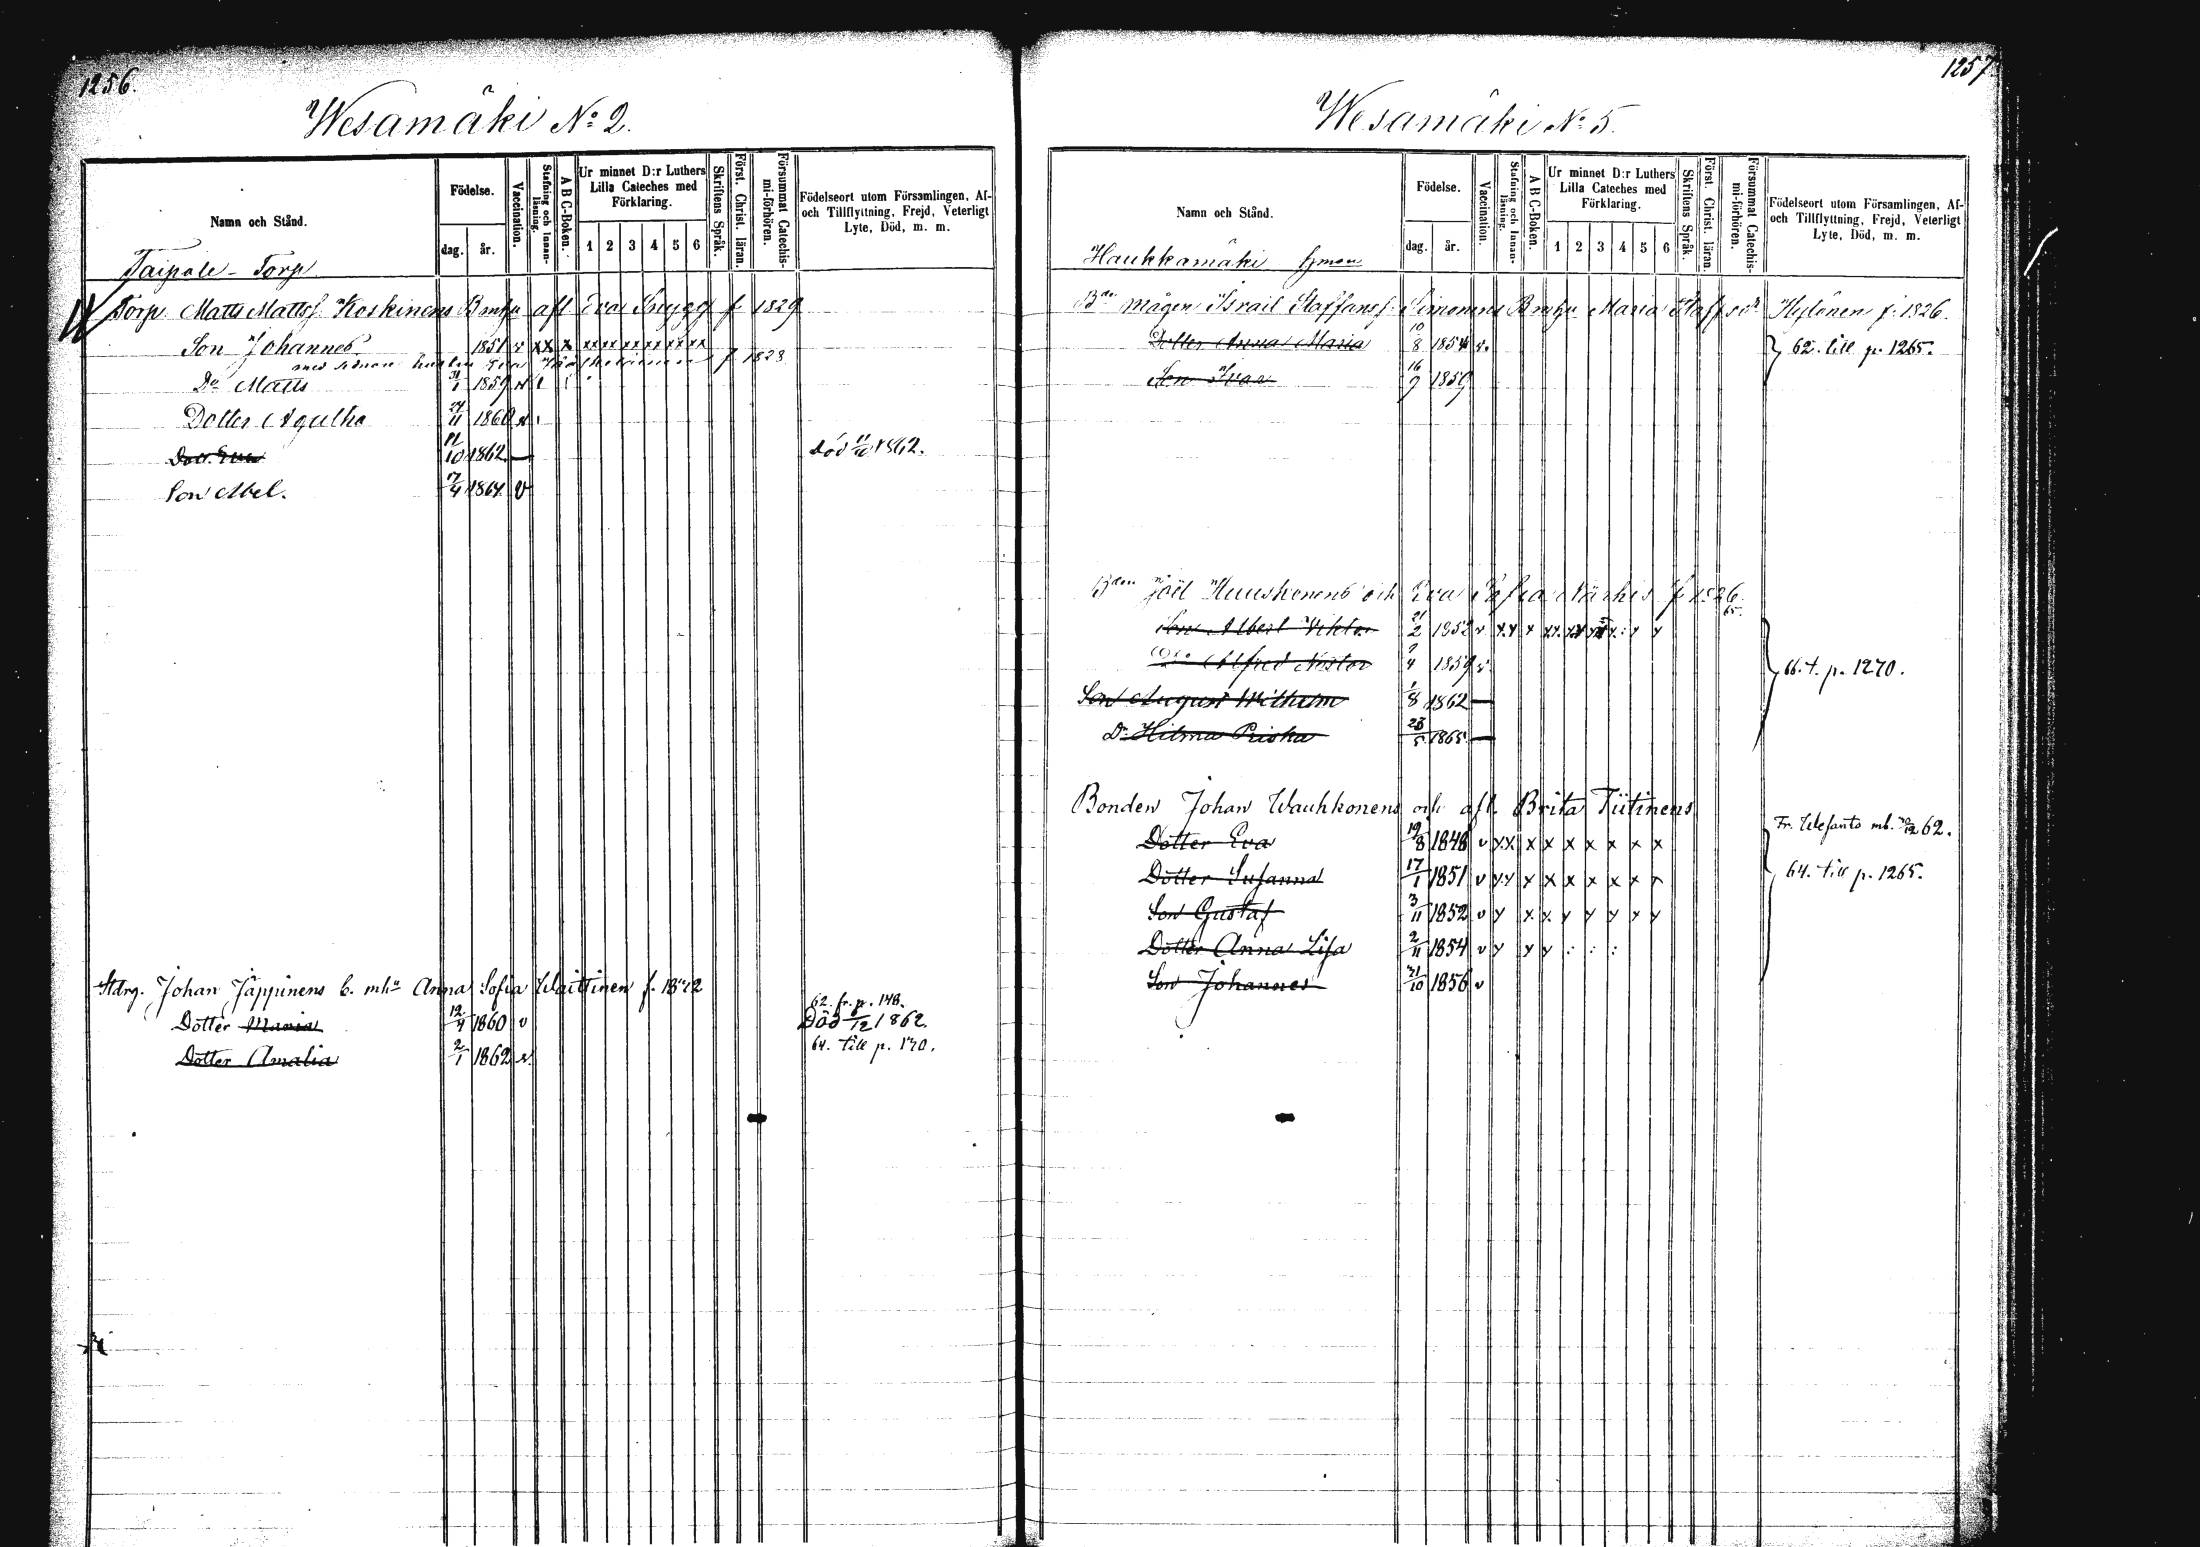 1256.
Wesamäki No 2.
Namn och Stånd.
Födelse.
dag.
år.
Vaccination.
Stafning och Innan-läsning.
A B C-Boken.
Ur minnet D:r Luthers Lilla Cateches med Förklaring.
1 2 3 4 5 6
Skriftens Språk.
Först. Christ. läran.
Försummat Catechis-mi-förhören.
Födelseort utom Församlingen, Af- och Tillflyttning, Frejd, Veterligt Lyte, Död, m. m.
Taipale - Torp
Torp Matts Mattss. Koskinens Bmhu afl Eva Snygg f 1829
Son Johannes 1851 v xx x xx xx xx xx xx xx
med sednare hustru Eva f 1828
Do Matts 31/1 1859 v
Dotter Agatha 24/11 1860 v
Dott. Eva 11/10 1862 — död 11/10 1862.
Son Abel. 7/4 1864 v
Stdrg. Johan Jäppinens b. mhu Anna Sofia Waittinen f. 1842
62. fr. p. 148.
Dotter Maria 12/4 1860 v Död 8/12 1862.
Dotter Amalia 2/1 1862 v. 64. till p. 170.
1257
Wesamäki No 5.
Namn och Stånd.
Födelse.
dag.
år.
Vaccination.
Stafning och Innan-läsning.
A B C-Boken.
Ur minnet D:r Luthers Lilla Cateches med Förklaring.
1 2 3 4 5 6
Skriftens Språk.
Först. Christ. läran.
Försummat Catechis-mi-förhören.
Födelseort utom Församlingen, Af- och Tillflyttning, Frejd, Veterligt Lyte, Död, m. m.
Haukkamäki Hman
Bdn mågen Israil Staffanss. Simonens Bmhu Maria Staffsdr Hyfönen f. 1826.
Dotter Anna Maria 10/8 1854 v. 62. till p. 1265.
Son Ivar 16/9 1859
Bden Joël Huuskonens och Eva Sofia Närhis f 1826
65.
Son Albert Viktor 21/2 1852 v x.x x
Do Alfred Nestor 9/4 1859 v. 66. t. p. 1270.
Son August Wilhelm 1/8 1862 —
Dr Hilma Priska 23/5 1865 —
Bonden Johan Wauhkonens och afl. Brita Tiitinens
Fr. Wesanto mb. 62.
Dotter Eva 19/8 1848 v xx x x x x x x x
Dotter Susanna 17/1 1851 v xx x x x x x x 64. till p. 1265.
Son Gustaf 3/11 1852 v x x x x x x x x
Dotter Anna Lisa 2/11 1854 v x x x : : :
Son Johannes 31/10 1856 v